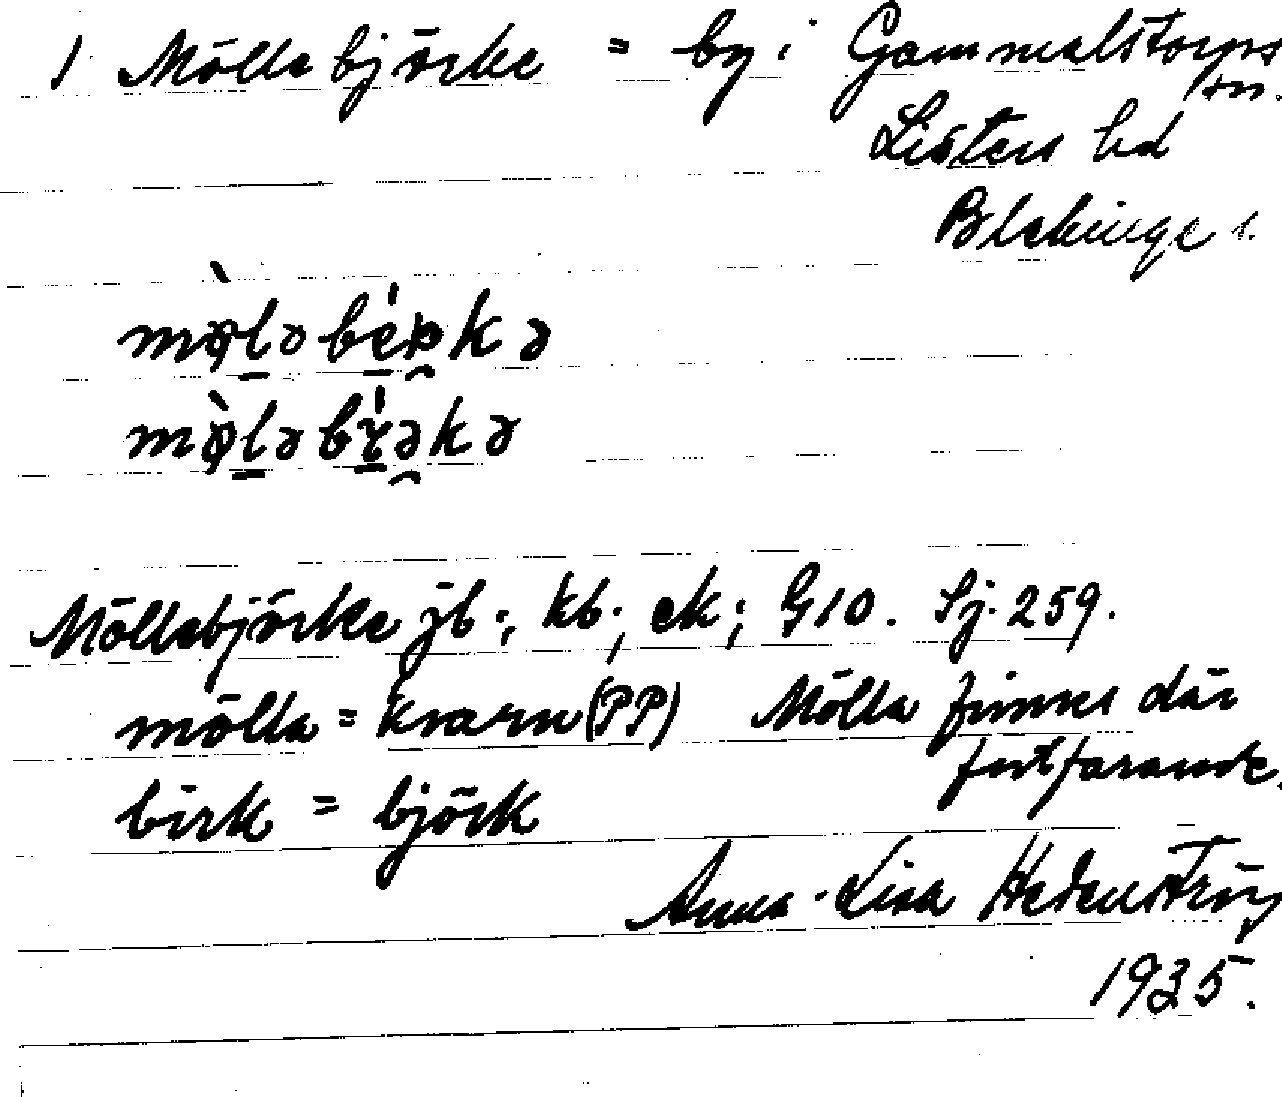 1 Möllebjörke = by i Gammalstorps sn.
Listers hd
Blekinge l.
Möllebjörke jb; kb; ek; G10. Sj. 259.
mölla = kvarn (PP) Mölla finnes där
fortfarande.
birk = björk
Anna-Lisa
1935.